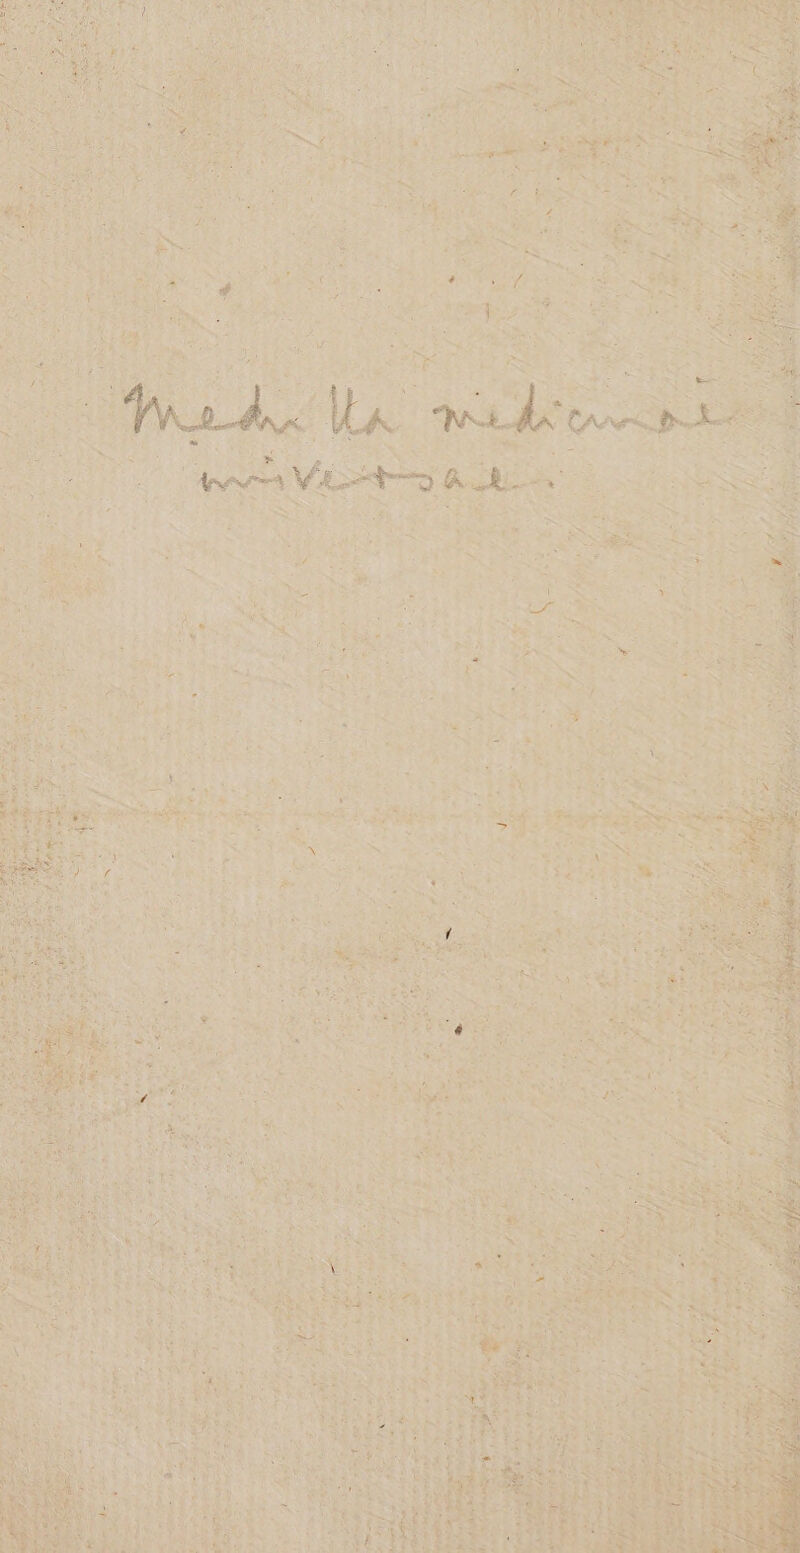 Medulla medicinae
universae.